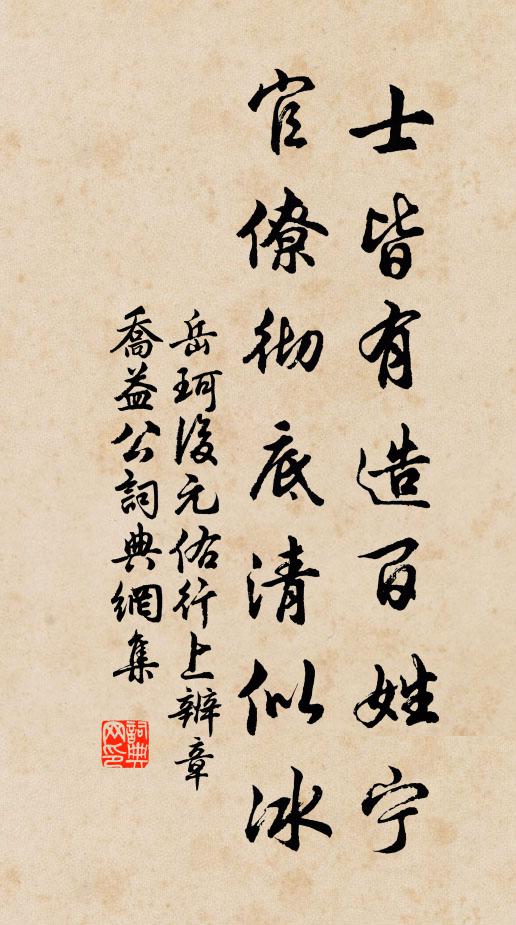 士皆有造百姓宁
官僚彻底清似冰
岳珂後元佑行上辨章
喬益公詞典網集
詞典网印